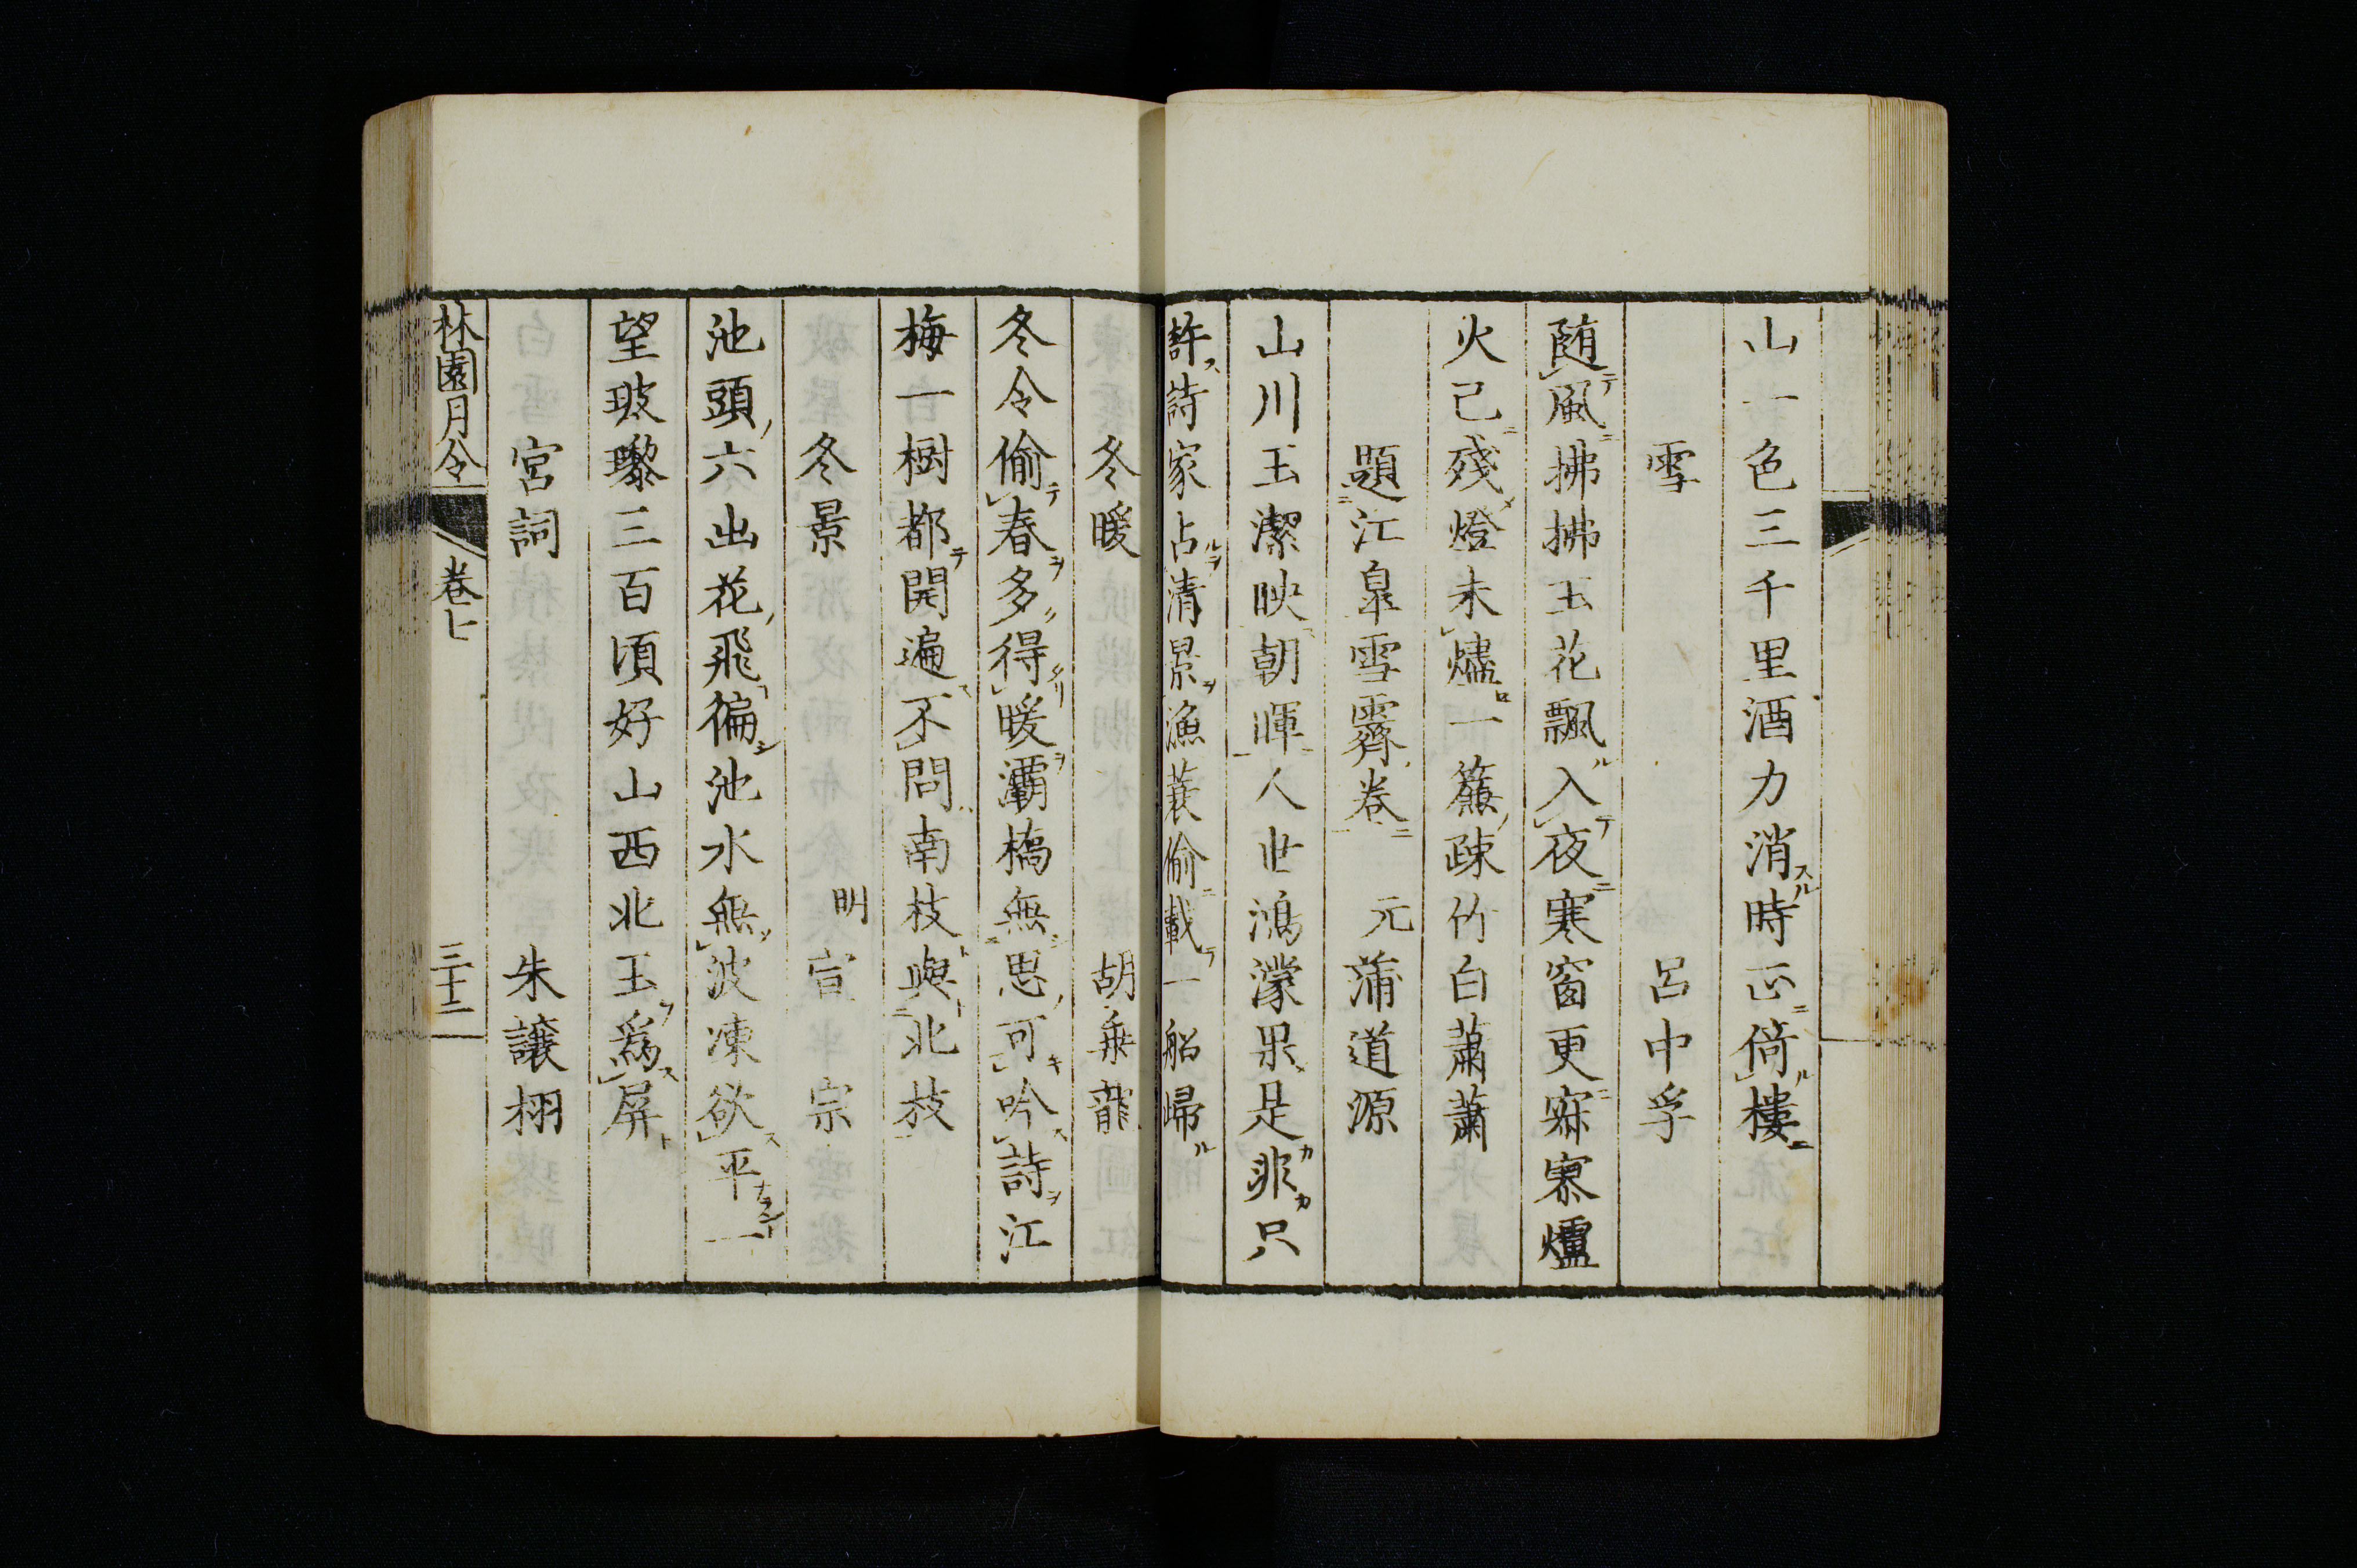 山一色三千里酒力消時正倚樓
雪 呂中孚
随風拂拂玉花飄入夜寒窗更寂寥爐
火已殘燈未燼一簾疎竹白蕭蕭
題江皐雪霽卷 元 蒲道源
山川玉潔映朝暉人世鴻濛果是非只
許詩家占清景漁蓑偷載一船歸
冬暖 胡乗龍
冬令偷春多得暖灞橋無思可吟詩江
梅一樹都開遍不問南枝與北枝
冬景 明 宣宗
池頭六出花飛徧池水無波凍欲平一
望玻瓈三百頃好山西北玉爲屏
宮詞 朱讓栩
林園月令 卷七 三十二